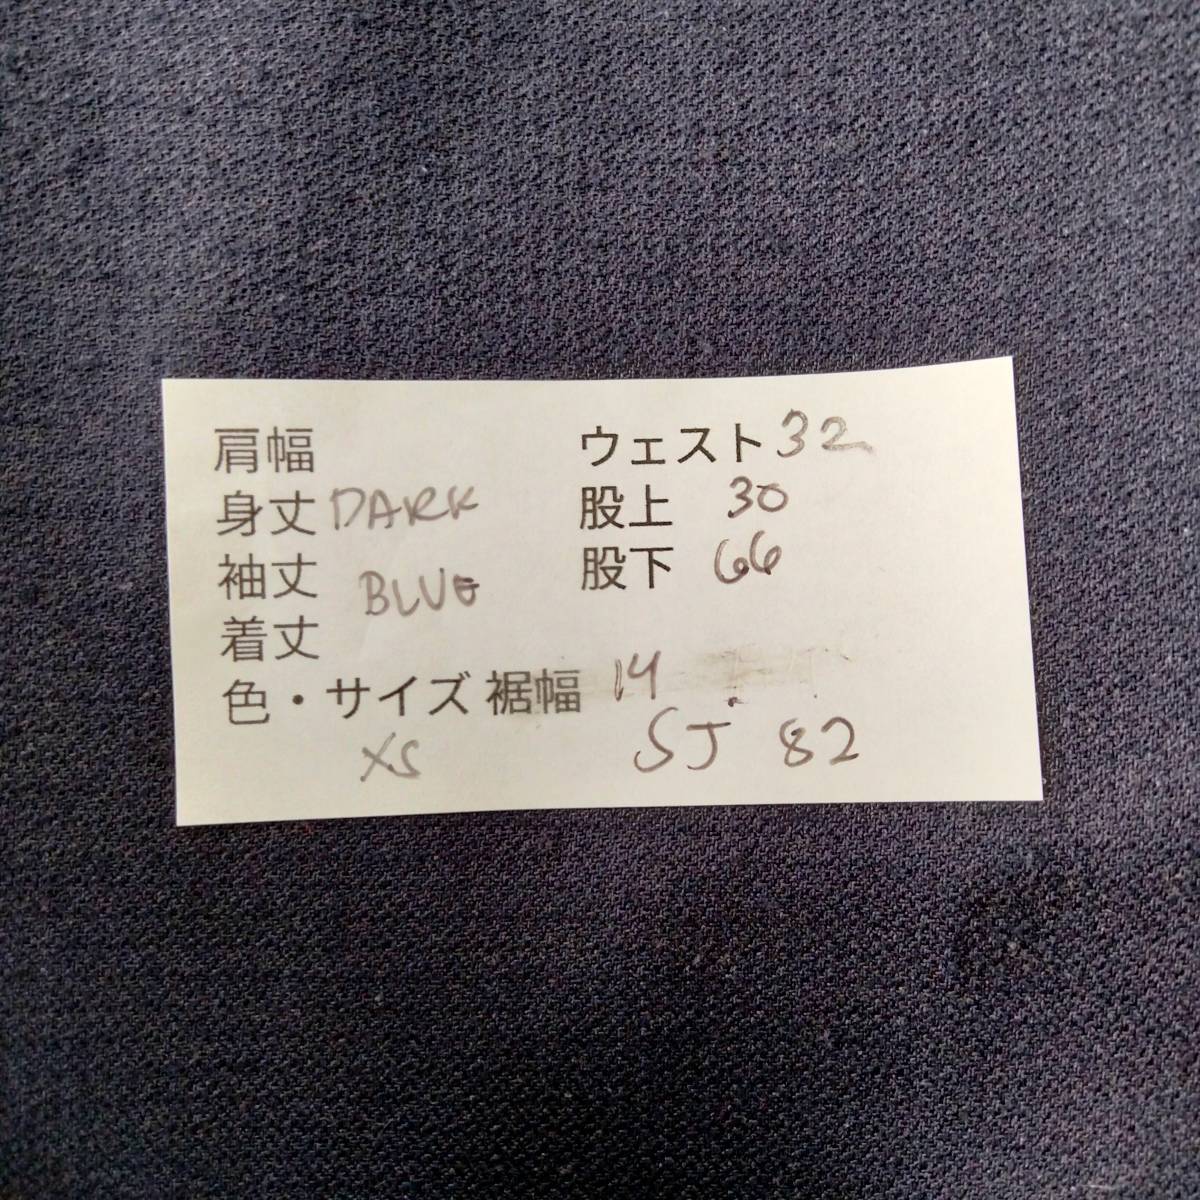 肩幅 ウェスト 32
身丈 DARK 股上 30
袖丈 BLUE 股下 66
着丈
色・サイズ 裾幅 14
XS SJ 82